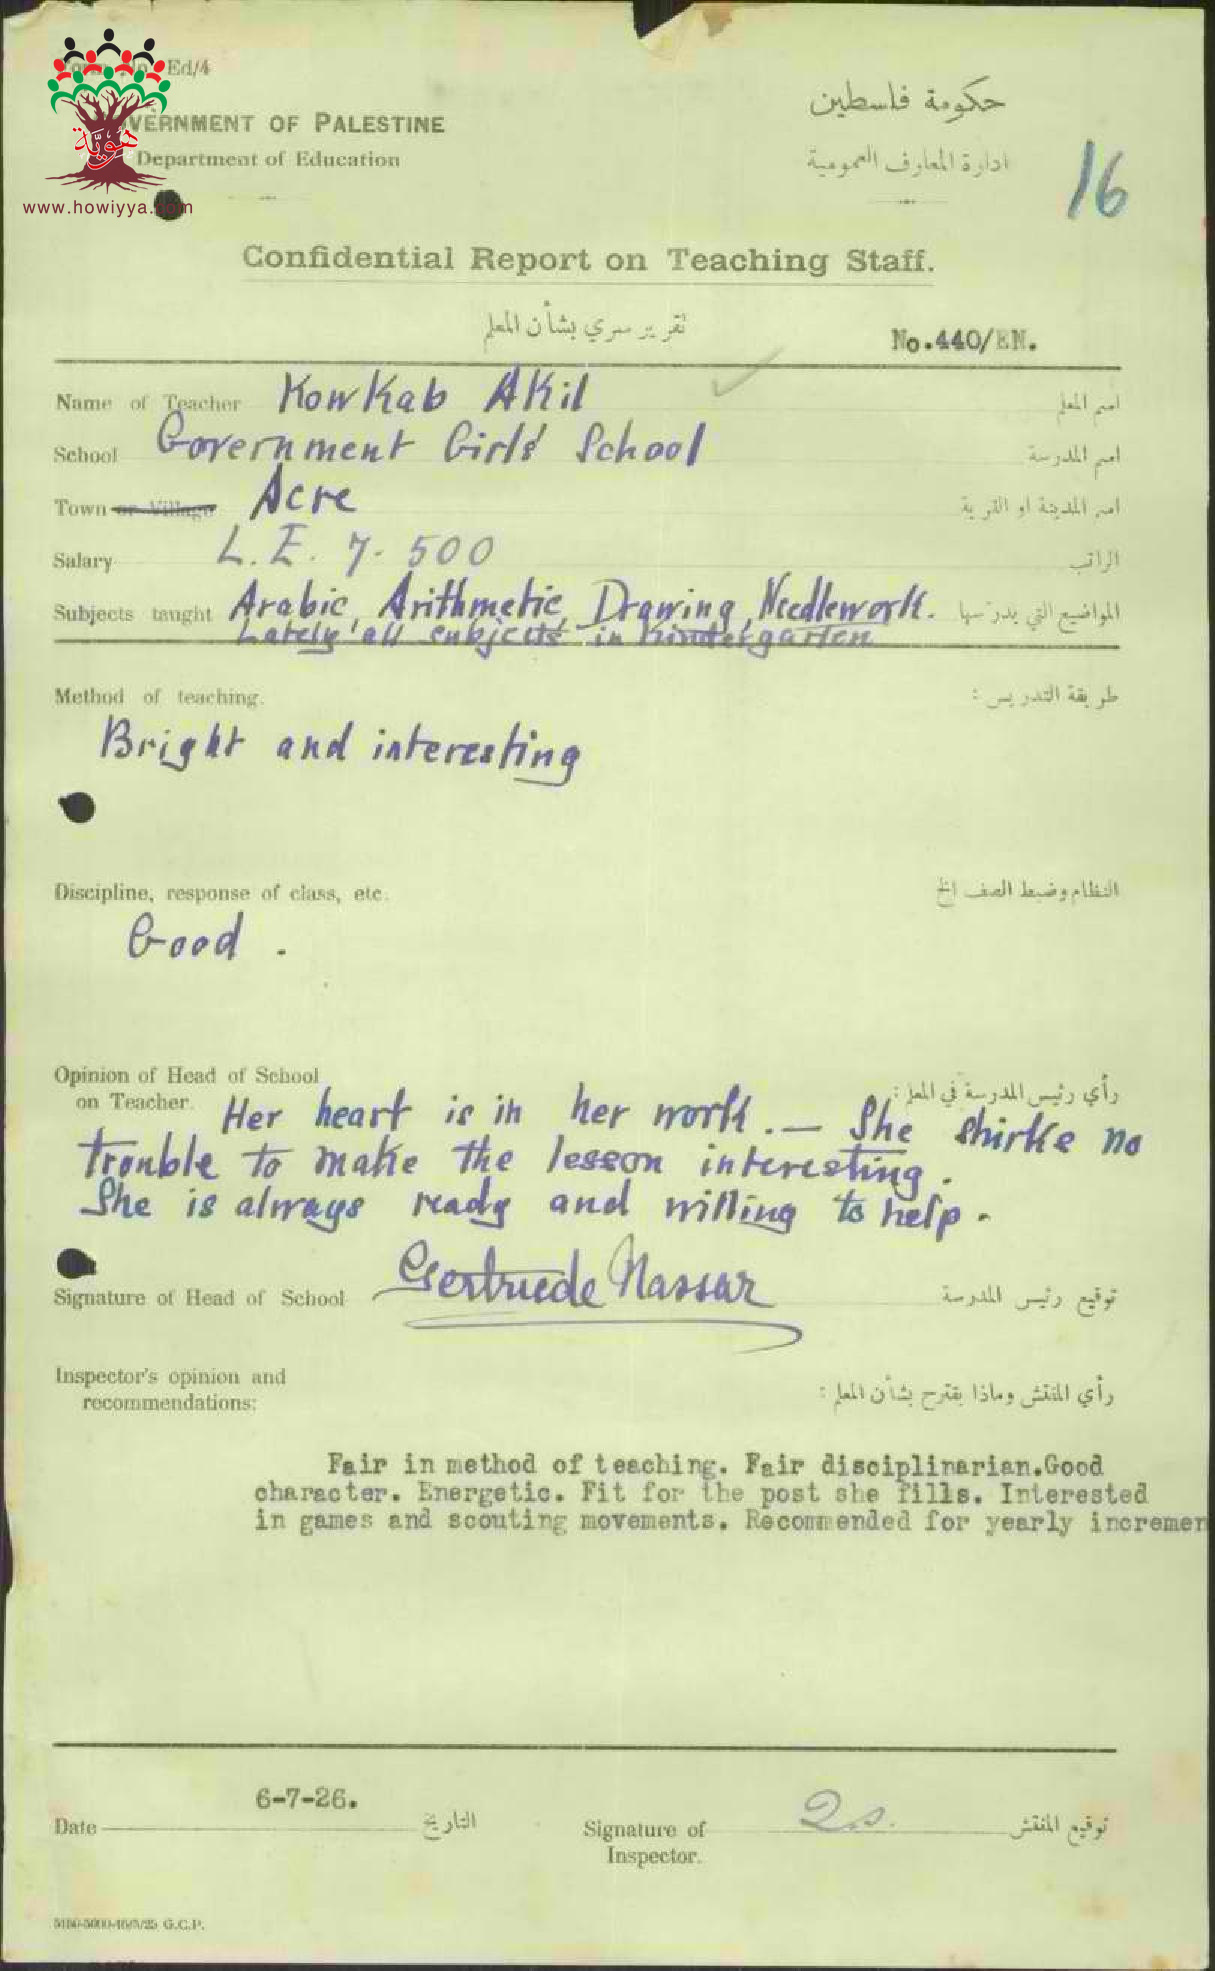 Ed/4
هوية
www.howiyya.com
GOVERNMENT OF PALESTINE
Department of Education
حكومة فلسطين
ادارة المعارف العمومية
16
Confidential Report on Teaching Staff.
تقرير سري بشأن المعلم
No.440/EN.
Name of Teacher Kowkab Akil اسم المعلم
School Government Girls' School اسم المدرسة
Town or Village Acre اسم المدينة او القرية
Salary L.E. 7.500 الراتب
Subjects taught Arabic, Arithmetic, Drawing, Needlework. المواضيع التي يدرسها
Lately all subjects in Kindergarten
Method of teaching. طريقة التدريس :
Bright and interesting
Discipline, response of class, etc. النظام وضبط الصف الخ
Good .
Opinion of Head of School
on Teacher. رأي رئيس المدرسة في المعلم :
Her heart is in her work. — She shirks no
trouble to make the lesson interesting.
She is always ready and willing to help.
Signature of Head of School Gertruede Nassar توقيع رئيس المدرسة
Inspector's opinion and
recommendations: رأي المفتش وماذا يقترح بشأن المعلم :
Fair in method of teaching. Fair disciplinarian.Good
character. Energetic. Fit for the post she fills. Interested
in games and scouting movements. Recommended for yearly incremen
6-7-26.
Date التاريخ
Signature of توقيع المفتش
Inspector.
G.C.P.